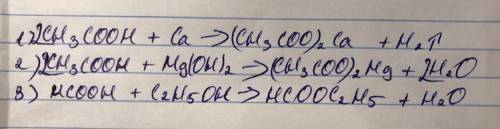 1) 2CH₃COOH + Ca → (CH₃COO)₂Ca + H₂↑
2) 2CH₃COOH + Mg(OH)₂ → (CH₃COO)₂Mg + 2H₂O
3) HCOOH + C₂H₅OH → HCOOC₂H₅ + H₂O